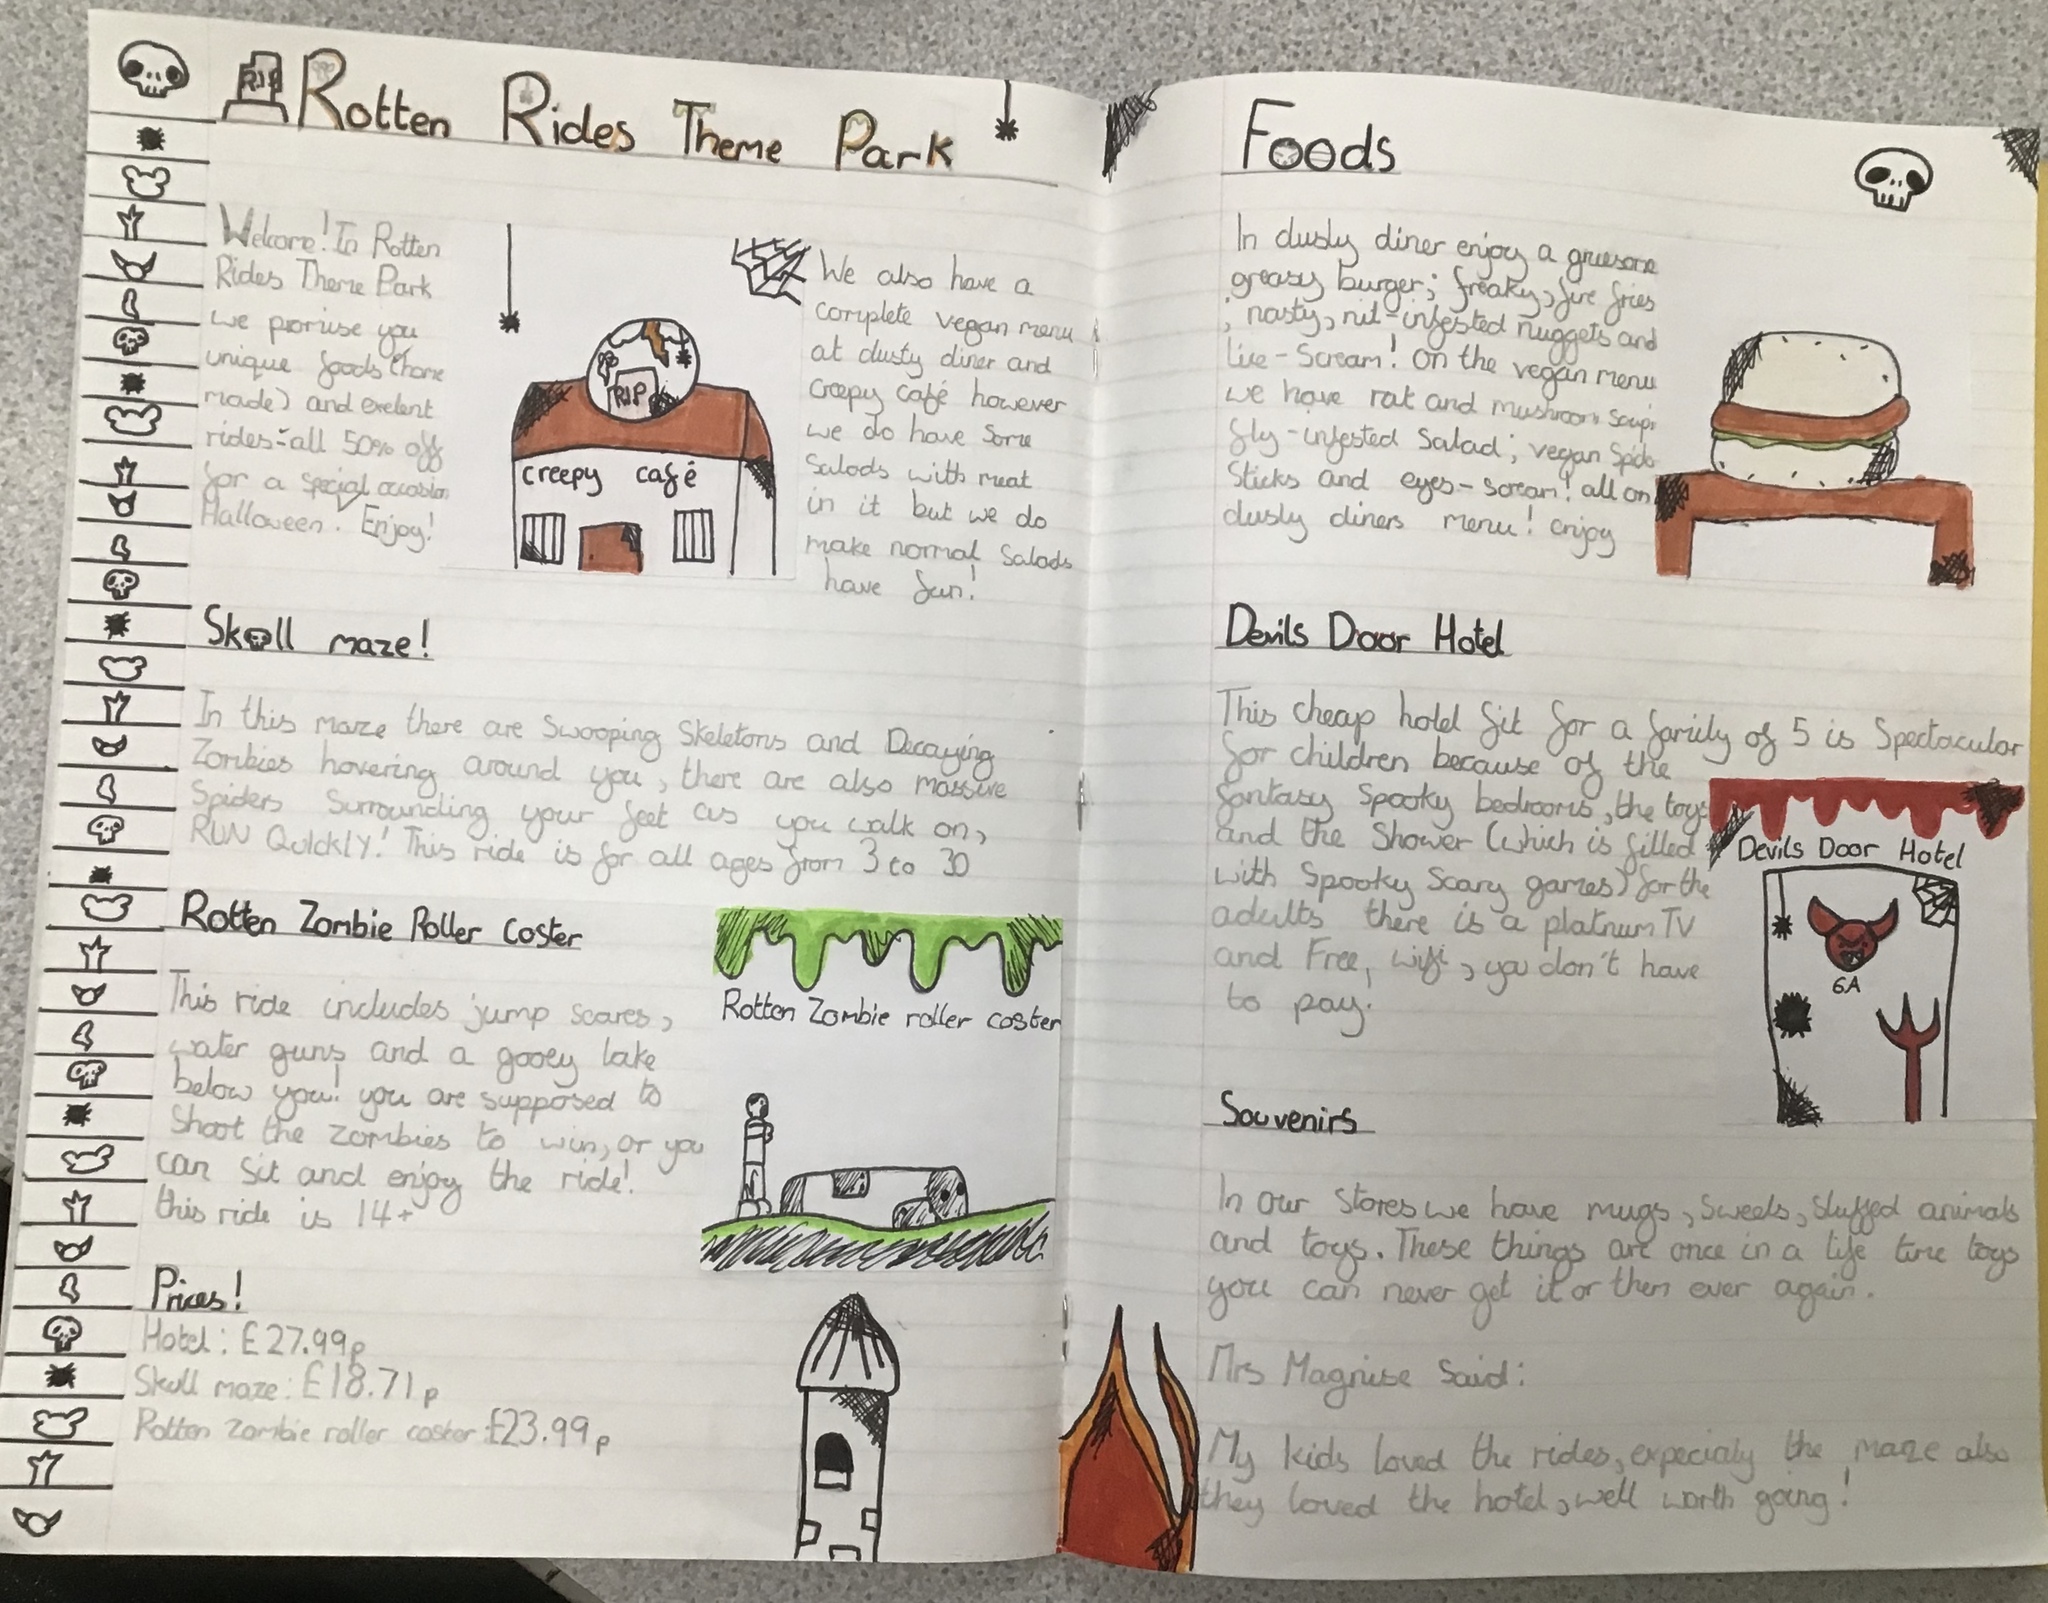 RIP
Rotten Rides Theme Park
Welcome! In Rotten
Rides Theme Park
we promise you
unique foods (home
made) and exelent
rides - all 50% off
for a special occasion
Halloween. Enjoy!
RIP
creepy café
We also have a
complete vegan menu
at dusty diner and
creepy café however
we do have some
salads with meat
in it but we do
make normal salads
have fun!
Skull maze!
In this maze there are Swooping Skeletons and Decaying
Zombies hovering around you, there are also massive
Spiders surrounding your feet as you walk on,
RUN QuickLY! This ride is for all ages from 3 to 30
Rotten Zombie Roller Coster
This ride includes jump scares,
water guns and a gooey lake
below you! you are supposed to
shoot the zombies to win, or you
can sit and enjoy the ride!
this ride is 14+
Rotten Zombie roller coster
Prices!
Hotel: £27.99p
Skull maze: £18.71p
Rotten Zombie roller coster: £23.99p
Foods
In dusty diner enjoy a gruesome
greasy burger; freaky, fire fries
; nasty, nit-infested nuggets and
lice-Scream! On the vegan menu
we have rat and mushroom soup;
fly-infested salad; vegan
Sticks and eyes-scream! all on
dusty diners menu! enjoy
Devils Door Hotel
This cheap hotel fit for a family of 5 is Spectacular
for children because of the
fantasy Spooky bedrooms, the toys
and the Shower (which is filled
with Spooky Scary games) for the
adults there is a platnum TV
and Free, wifi, you don't have
to pay!
Devils Door Hotel
6A
Souvenirs
In our stores we have mugs, sweets, stuffed animals
and toys. These things are once in a life time toys
you can never get it or them ever again.
Mrs Magnise Said:
My kids loved the rides, expecialy the maze also
they loved the hotel, well worth going!